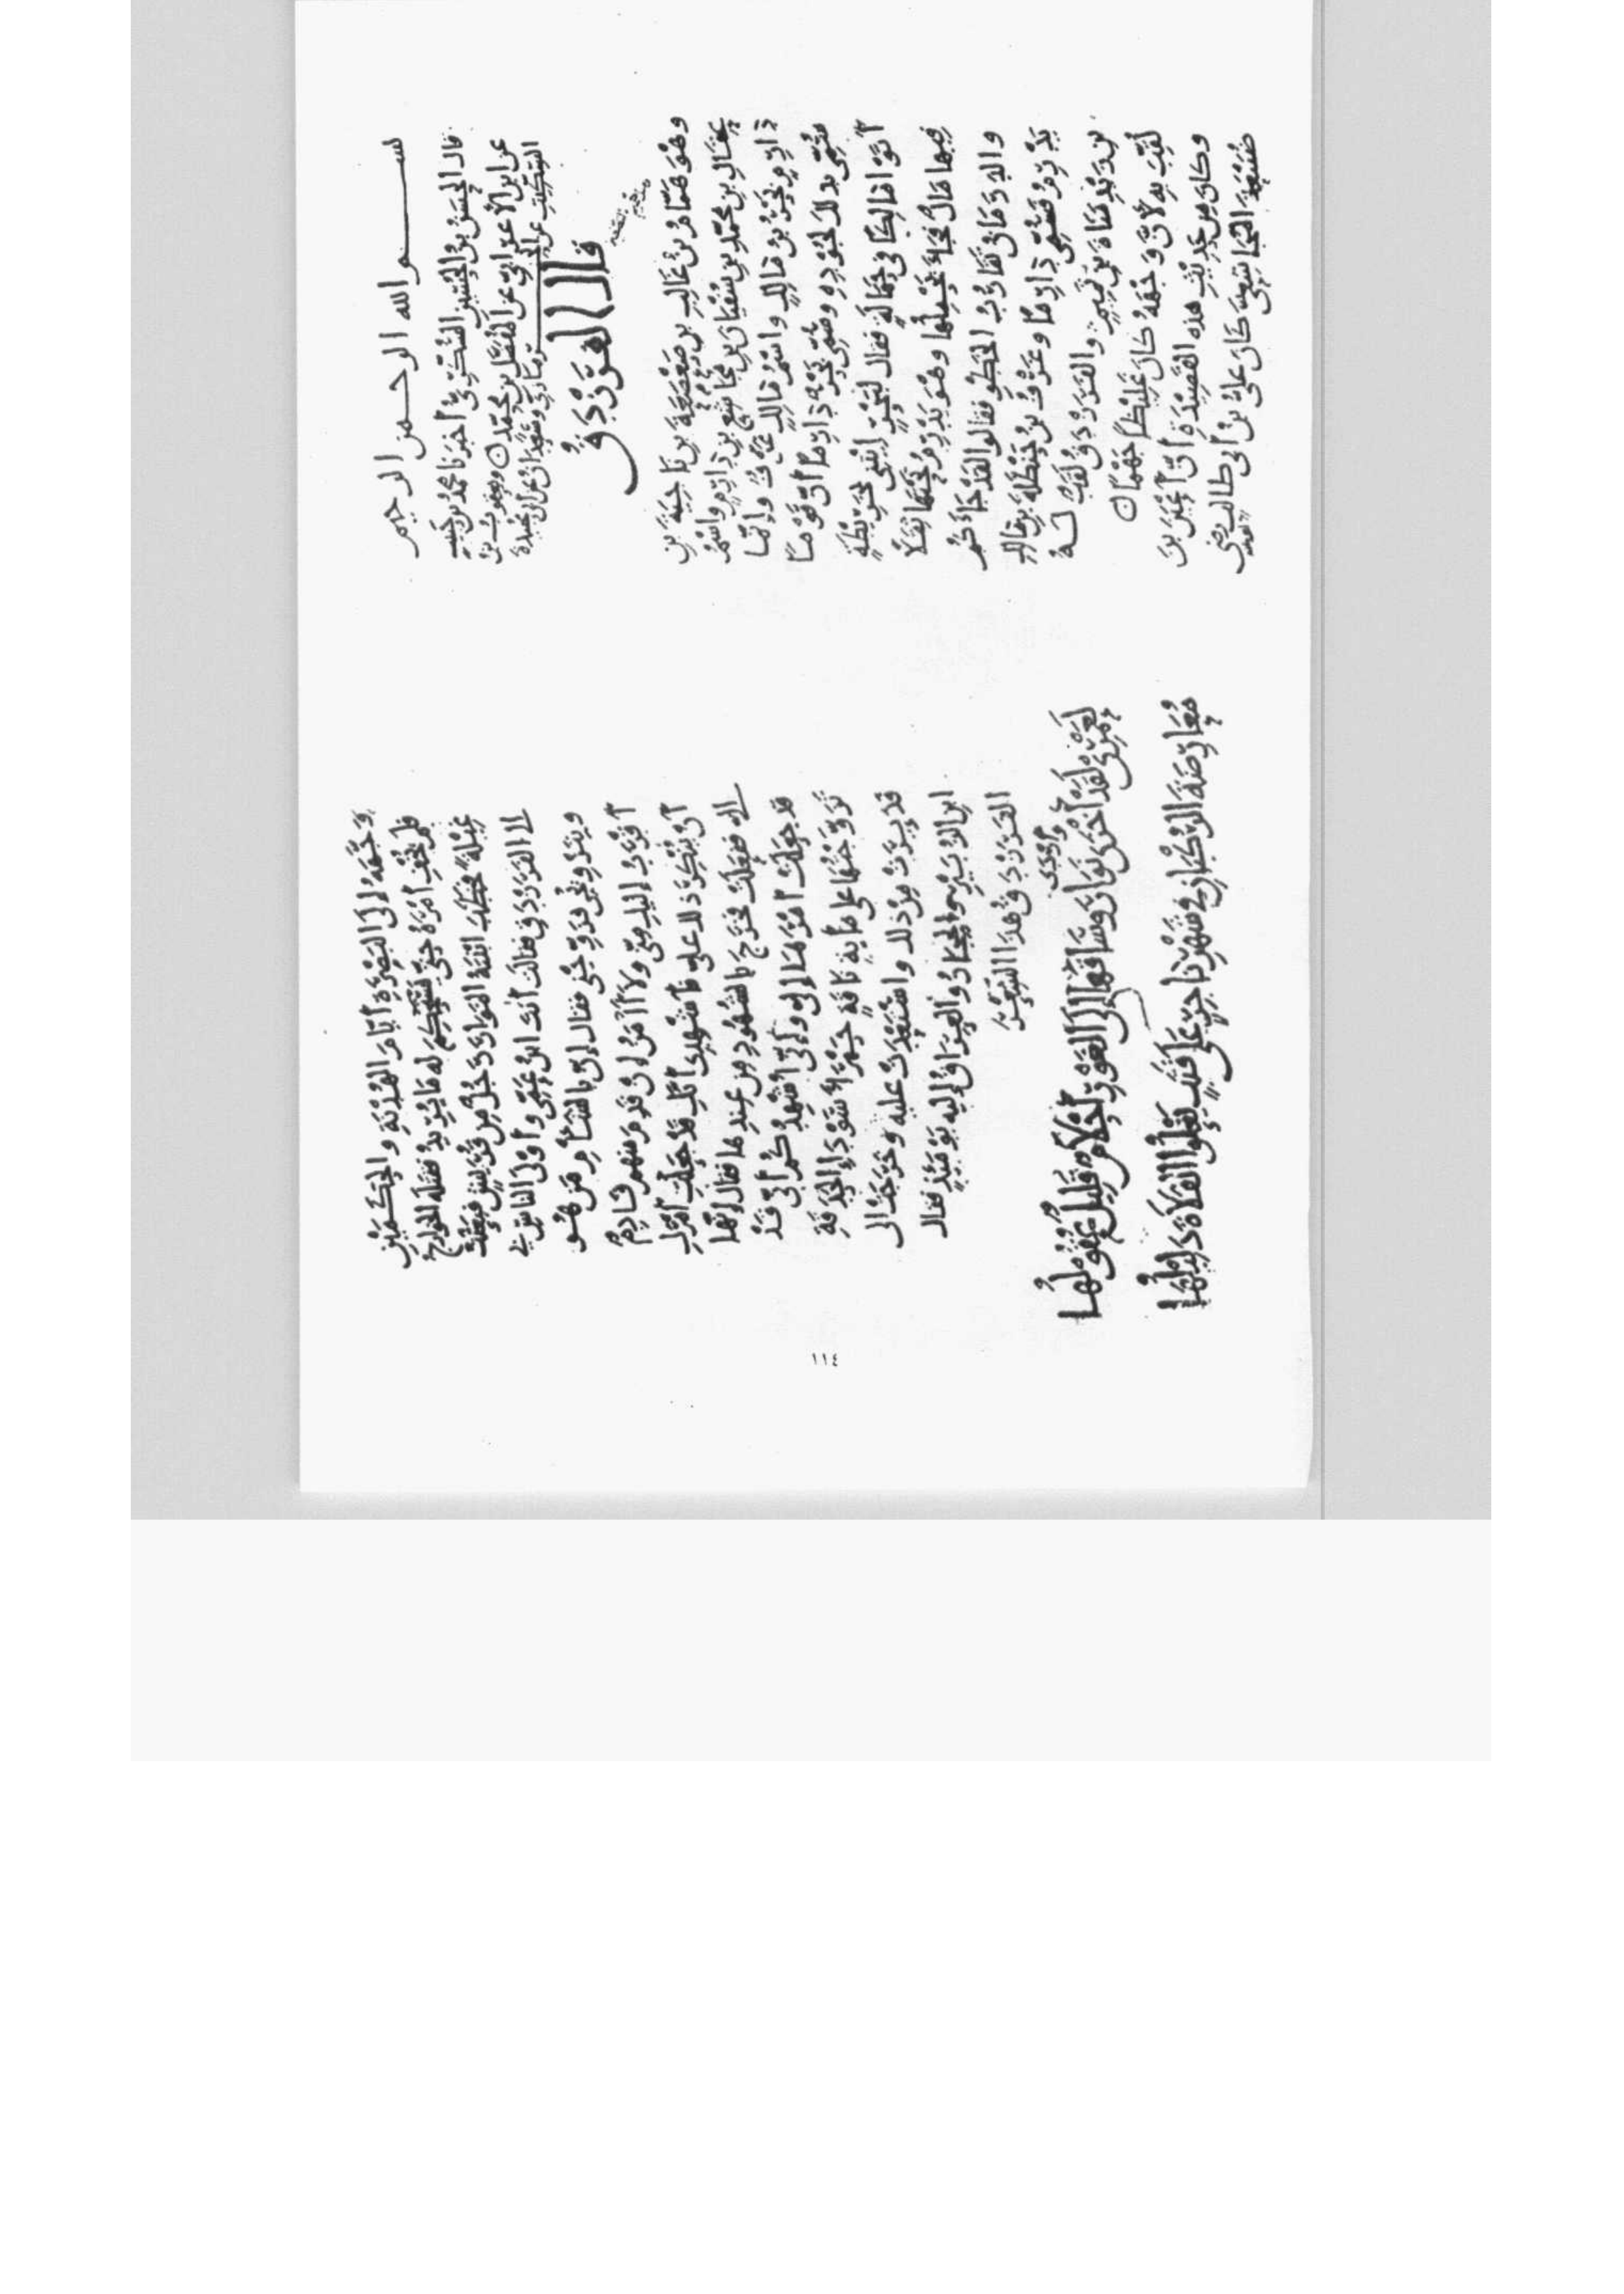 بسم الله الرحمن الرحيم
قال الحسن بن الحسين السُّكَّرِيُّ أخبرنا محمد بن حبيب
عن ابن الأعرابيّ عن المفضّل بن محمد ويعقوب بن
السِّكِّيت عن
قال الفرزدق
وهُوَ هَمّامُ بنُ غَالِبِ بنِ صَعْصَعَةَ بنِ نَاجِيَةَ بنِ
عِقَالِ بنِ محمّد بنِ سُفْيَانَ بنِ مُجَاشِعِ بنِ دَارِمٍ واسْمُ
دَارِمٍ بَحْرُ بنُ مَالِكٍ واسْمُ مَالِكٍ عَوْفٌ وإنّما
سُمِّيَ بذلك لجُودِهِ وسُمِّيَ بَحْرٌ دَارِمًا أنَّ قَوْمًا
أتَوْا مَالِكًا في حَمَالَةٍ فقال لبَحْرٍ ائْتِنِي بخَرِيْطَةٍ
فيها مَالٌ فجَاءَ يَحْمِلُهَا وهُوَ يَدْرِمُ تَحْتَهَا ثِقَلًا
والدَّرَمَانُ تَقَارُبُ الخَطْوِ فقال لقَدْ جَاءَكُم
يَدْرِمُ فسُمِّيَ دَارِمًا وعَوْفُ بنُ حَنْظَلَةَ بنِ مالكِ
بنِ زَيْدِ مَنَاةَ بنِ تَمِيمٍ والفَرَزْدَقُ لَقَبٌ لَهُ
لُقِّبَ به لأنَّ وَجْهَهُ كانَ غَلِيْظًا جَهْمًا
وكانَ مِن حَدِيْثِ هذه القَصِيْدَةِ أنَّ أعْيَنَ بنَ
ضُبَيْعَةَ المُجَاشِعِيَّ كانَ عليُّ بنُ أبي طالب رضي الله عنه
وَجَّهَهُ إلَى البَصْرَةِ أيَّامَ الهُدْنَةِ والحَكَمَيْنِ
غِيْلَةً فخَطَبَ ابْنَتَهُ النَّوَارَ رَجُلٌ مِن قُرَيْشٍ فبَعَثَتْ
إلى الفَرَزْدَقِ فقالت أنتَ ابنُ عَمِّي وأوْلَى الناسِ بي
وبتَزْوِيجِي فزَوِّجْنِي فقال إنّ بالشَّأْمِ مَن هُوَ
أقْرَبُ إليكِ مِنِّي ولا آمَنُ إنْ قَدِمَ منهم قَادِمٌ
أنْ يُنْكِرَ ذلك عليَّ فأَشْهِدِي أنَّكِ قَدْ جَعَلْتِ أمْرَكِ
إليّ ففَعَلَتْ فخَرَجَ بالشُّهُودِ مِن عِنْدِهَا فقال إنّها
قد جَعَلَتْ أمْرَهَا إليَّ وإنّي أُشْهِدُكُم أنّي قَدْ
تَزَوَّجْتُهَا على مِائَةِ نَاقَةٍ حَمْرَاءَ سَوْدَاءِ الحَدَقَةِ
من ذلك واسْتَعْدَتْ عليه وخَرَجَتْ إلى
ابنِ الزُّبَيْرِ والحِجَازُ والعِرَاقُ إليه يَوْمَئِذٍ فقال
الفَرَزْدَقُ هَذَا الشِّعْرَ
لَعَمْرِي لَقَدْ أَرْدَى نَوَارَ وَسَاقَهَا إلَى الغَوْرِ أَحْلَامٌ قَلِيلٌ عُقُولُهَا
مُعَارِضَةَ الرُّكْبَانِ في شَهْرِ نَاجِرٍ عَلَى قَتَبٍ يَعْلُو الفَلَاةَ دَلِيلُهَا
١١٤